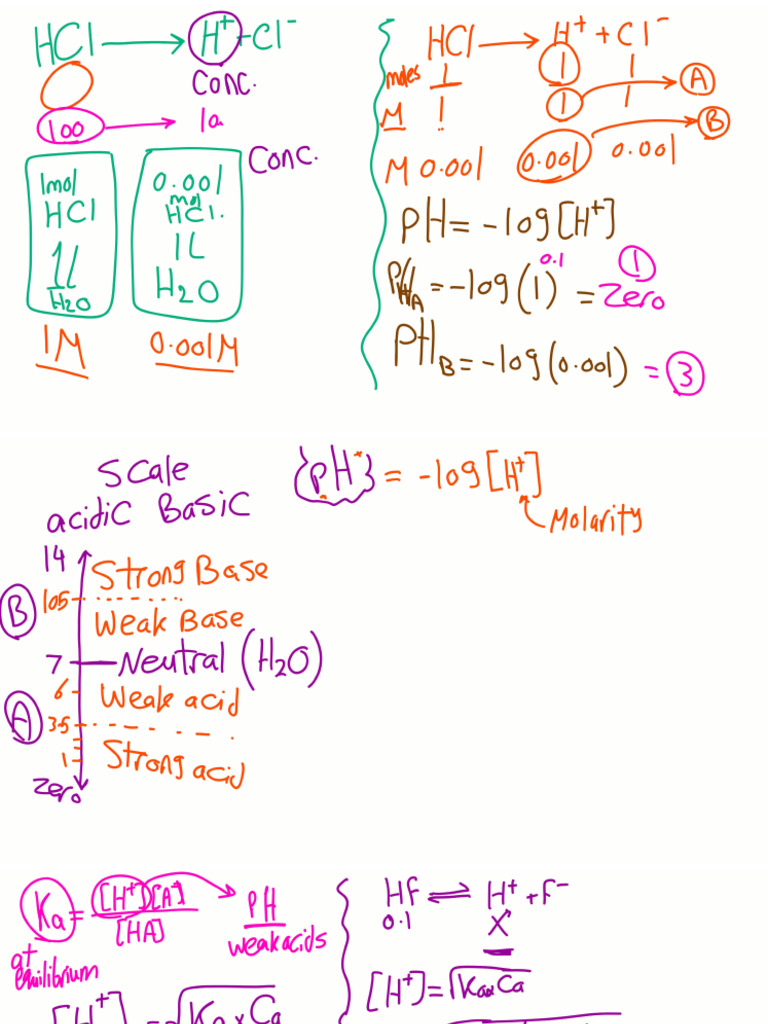 HCl → H⁺ + Cl⁻
Conc.
100 →
Conc.
1mol
HCl
1L
H₂O
1M
0.001
mol
HCl.
1L
H₂O
0.001M
HCl → H⁺ + Cl⁻
moles 1 1 1
M 1 1 1 A
M 0.001 0.001 0.001 B
pH = -log[H⁺]
0.1 1
pH_A = -log(1) = Zero
pH_B = -log(0.001) = 3
Scale
acidic Basic
14
Strong Base
B 10.5
Weak Base
7 Neutral (H₂O)
6 Weak acid
A 3.5
1 Strong acid
Zero
{pH} = -log[H⁺]
Molarity
Ka = [H⁺][A⁻] / [HA]
at equilibrium
PH
weak acids
[H⁺] = √Ka×Ca
Hf ⇌ H⁺ + f⁻
0.1 X
[H⁺] = √Ka×Ca